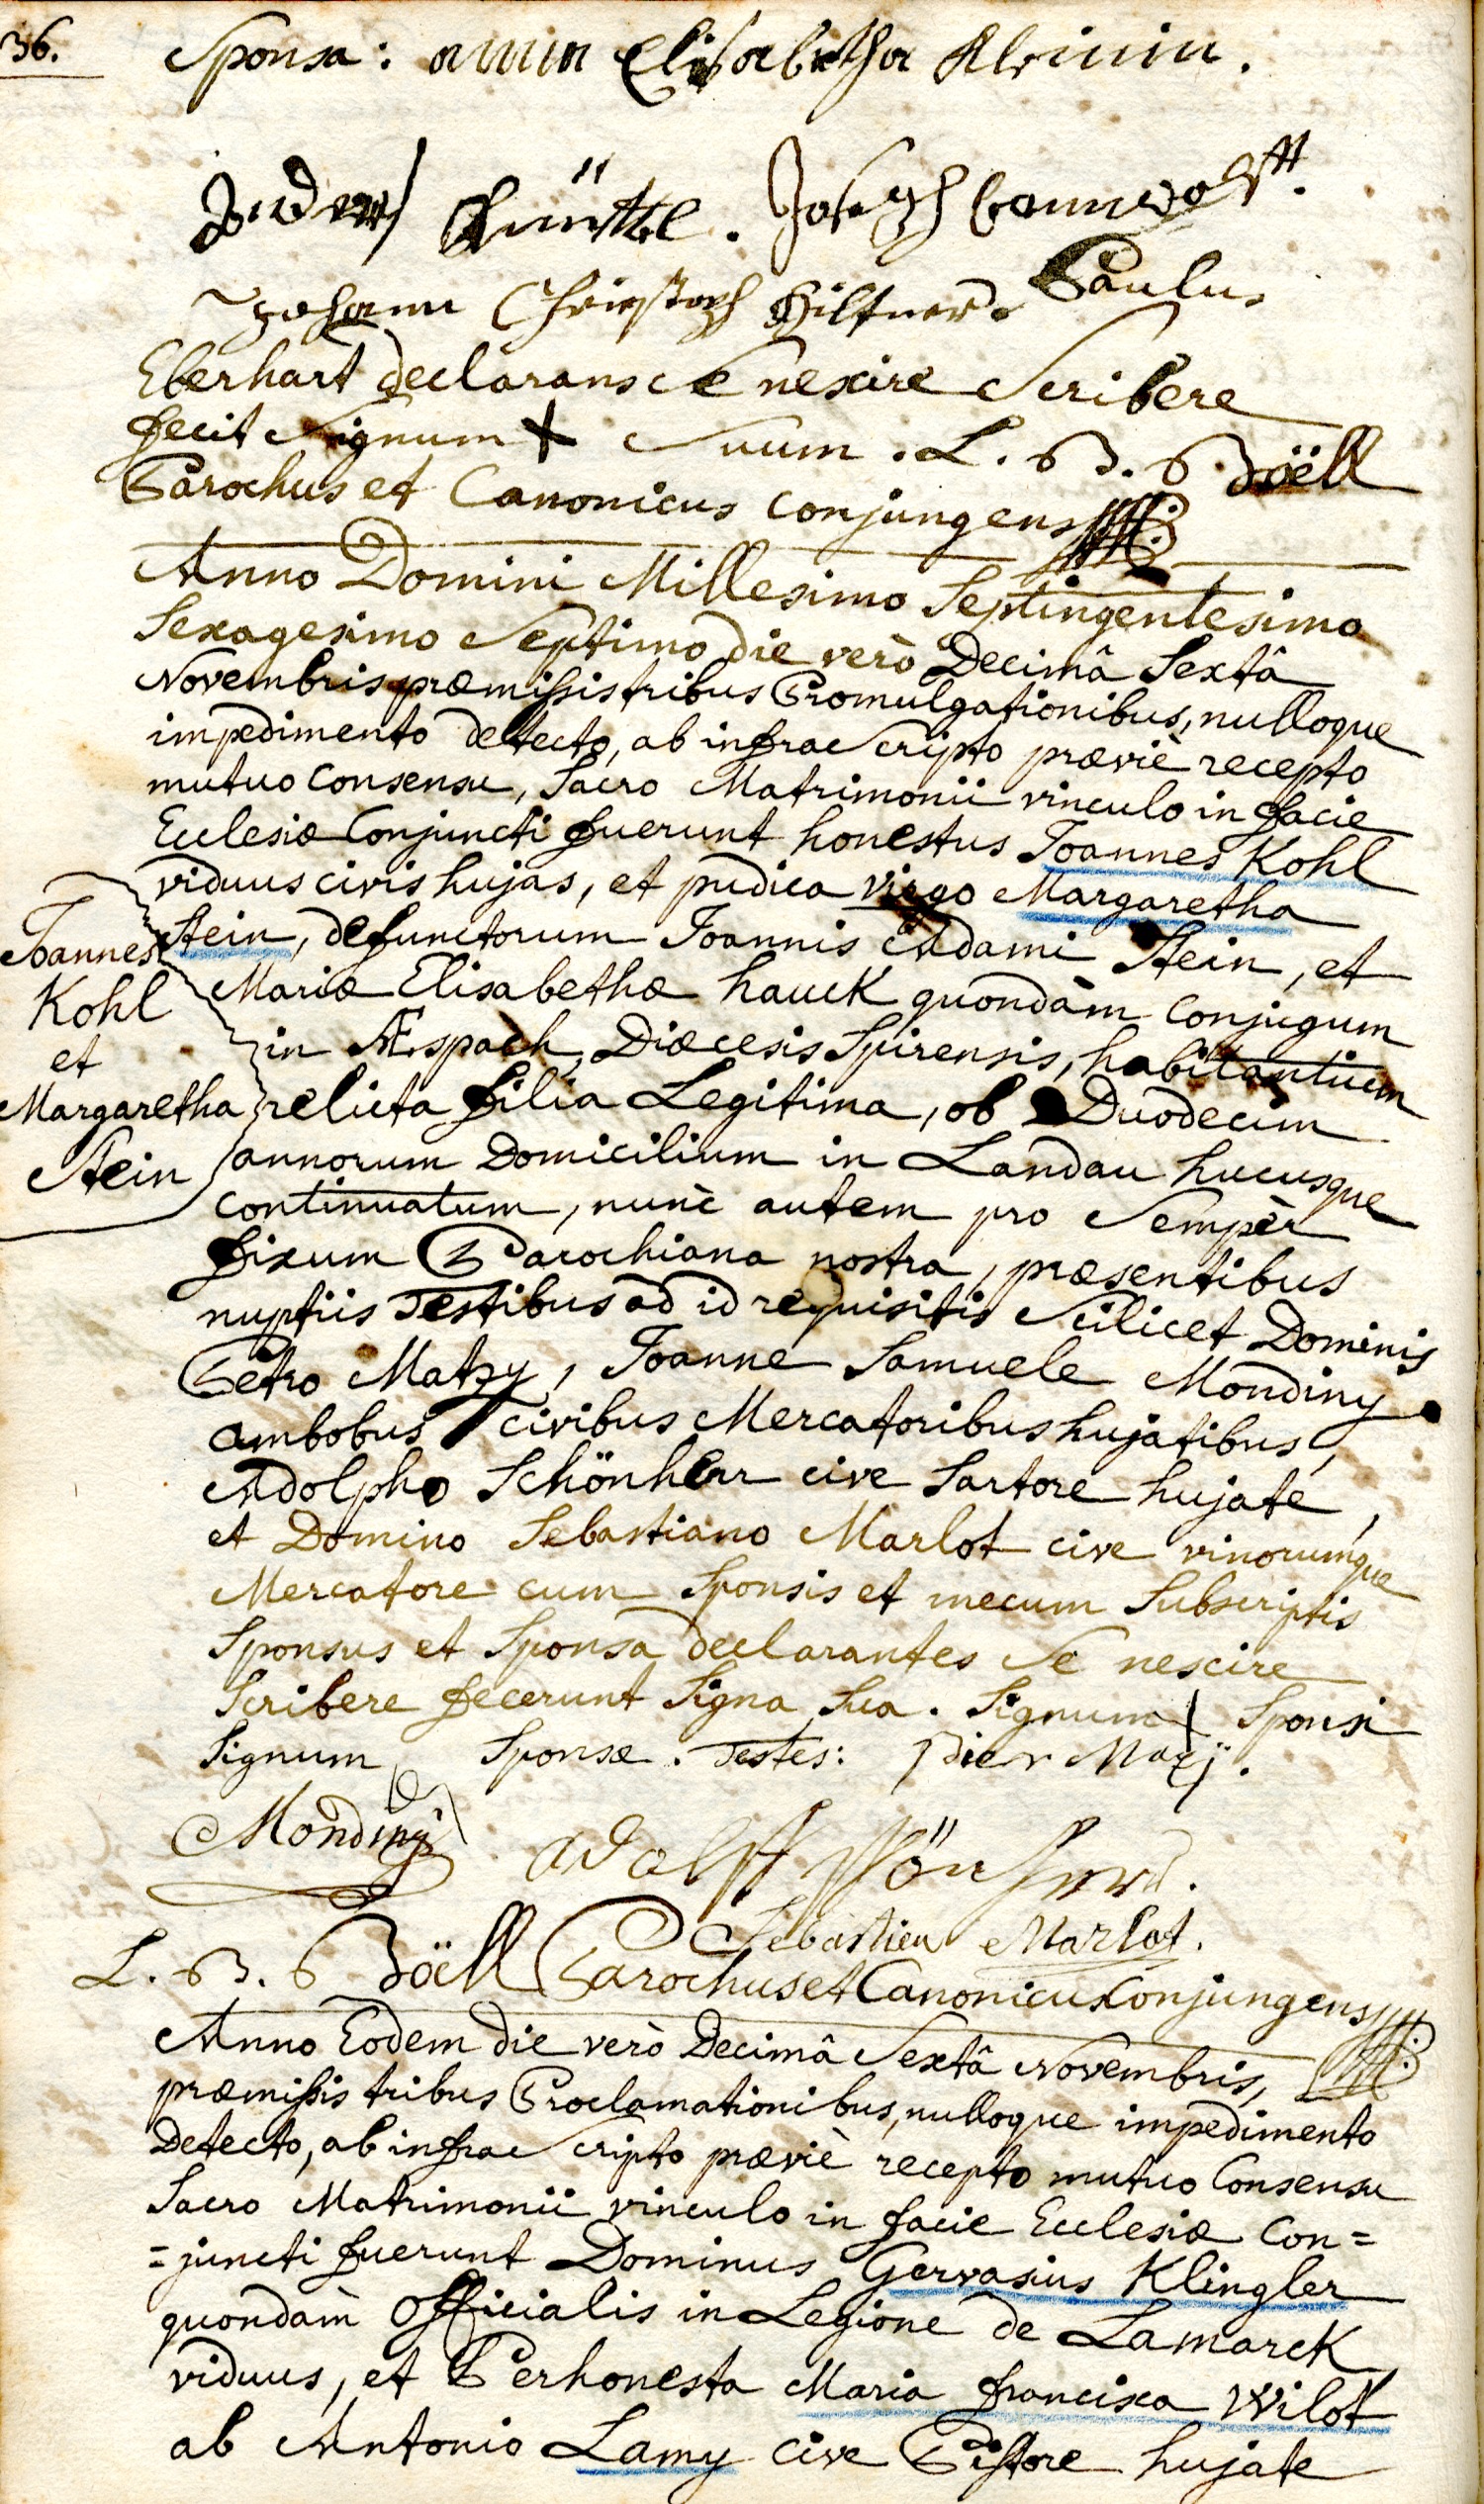 36.
Sponsa: anna Elisabetha Kleinin.
Johann Christoph Hiltner. Paulus
Eberhart declarans Se nescire Scribere
fecit Signum + Suum. L. B. Böëll
Parochus et Canonicus Conjungens
Anno Domini Millesimo Septingentesimo
Sexagesimo Septimo die verò Decimâ Sextâ
Novembris præmissis tribus Promulgationibus, nulloque
impedimento detecto, ab infrascripto præviè recepto
mutuo Consensu, Sacro Matrimonii vinculo in facie
Ecclesiæ Conjuncti fuerunt honestus Joannes Kohl
viduus civis hujas, et pudica virgo Margaretha
Stein, defunctorum Joannis Adami Stein, et
Mariæ Elisabethæ hauck quondàm Conjugum
in Æspach, Diœcesis Spirensis, habitantium
relicta filia Legitima, ob Duodecim
annorum Domicilium in Landau hucusque
Continuatum, nunc autem pro Sempèr
fixum Parochiana nostra, præsentibus
nuptiis Testibus ad id requisitis Scilicet Dominis
Petro Matzy, Joanne Samuele Mondiny
ambobus civibus Mercatoribus hujatibus,
Adolpho Schönherr cive Sartore hujate,
et Domino Sebastiano Marlot cive vinorumque
Mercatore cum Sponsis et mecum Subscriptis
Sponsus et Sponsa declarantes Se nescire
Scribere fecerunt Signa Sua. Signum + Sponsi
Signum Sponsæ. Testes:
Joannes
Kohl
et
Margaretha
Stein
Mondiny
Adolff schönherr.
Sebastien Marlot.
L. B. Böëll Parochus et Canonicus Conjungens
Anno Eodem die verò Decimâ Sextâ Novembris,
præmissis tribus Proclamationibus, nulloque impedimento
Detecto, ab infrascripto præviè recepto mutuo Consensu
Sacro Matrimonii vinculo in facie Ecclesiæ Con=
=juncti fuerunt Dominus Gervasius Klingler
quondàm Officialis in Legione de Lamarck
viduus, et Perhonesta Maria francisca Wilot
ab Antonio Lamy Cive Pistore hujate